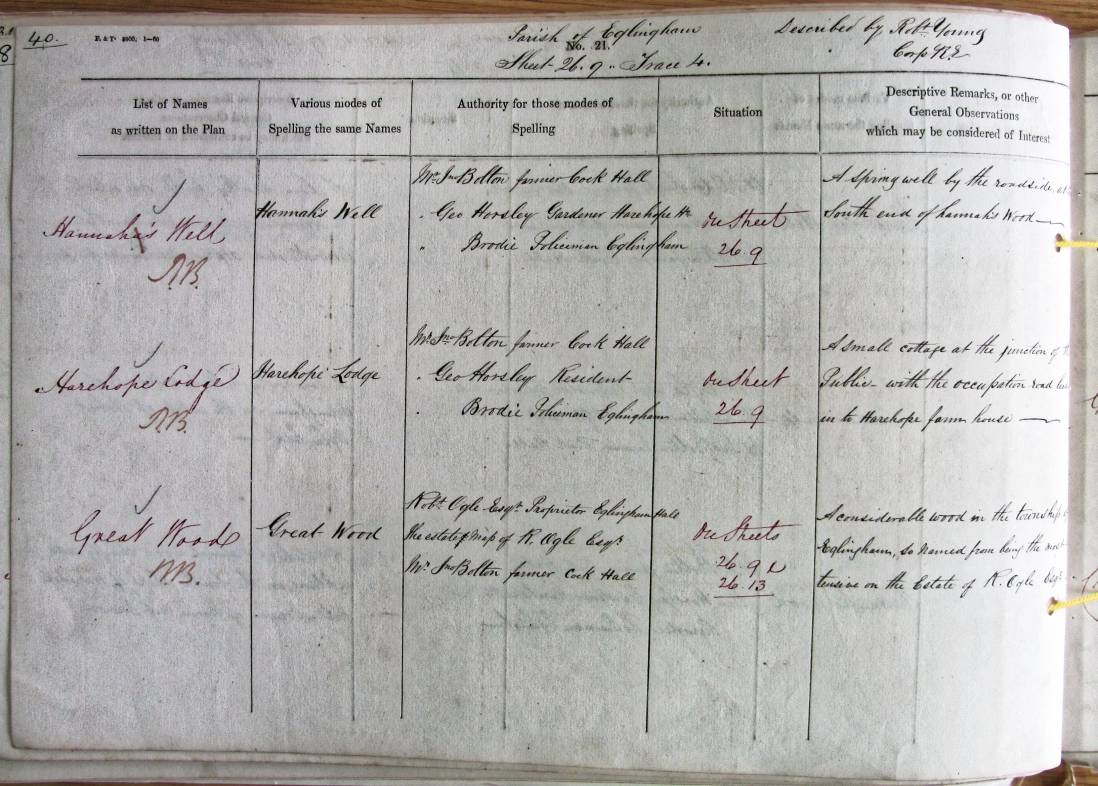 40.
E. & T. 2000, 1—60
Parish of Eglingham
No. 21.
Sheet 26.9 .. Trace 4.
Described by Robt Young
Corp R.E
List of Names
as written on the Plan
Various modes of
Spelling the same Names
Authority for those modes of
Spelling
Situation
Descriptive Remarks, or other
General Observations
which may be considered of Interest
Hannah's Well
Hannah's Well
Mr Jno Bolton farmer Cock Hall
" Geo Horsley Gardener Harehope Ho
" Brodie Policeman Eglingham
On Sheet
26.9
A spring well by the roadside at
South end of Hannah's Wood
Harehope Lodge
Harehope Lodge
Mr Jno Bolton farmer Cock Hall
" Geo Horsley Resident
" Brodie Policeman Eglingham
On Sheet
26.9
A small cottage at the junction of
Public with the occupation road
in to Harehope farm house
Great Wood
Great Wood
Robt Ogle Esqr Proprietor Eglingham Hall
The estate Map of R. Ogle Esqr
Mr Jno Bolton farmer Cock Hall
On Sheets
26.9 &
26.13
A considerable wood in the township
Eglingham, so named from being the most
tensive on the Estate of R. Ogle Esqr